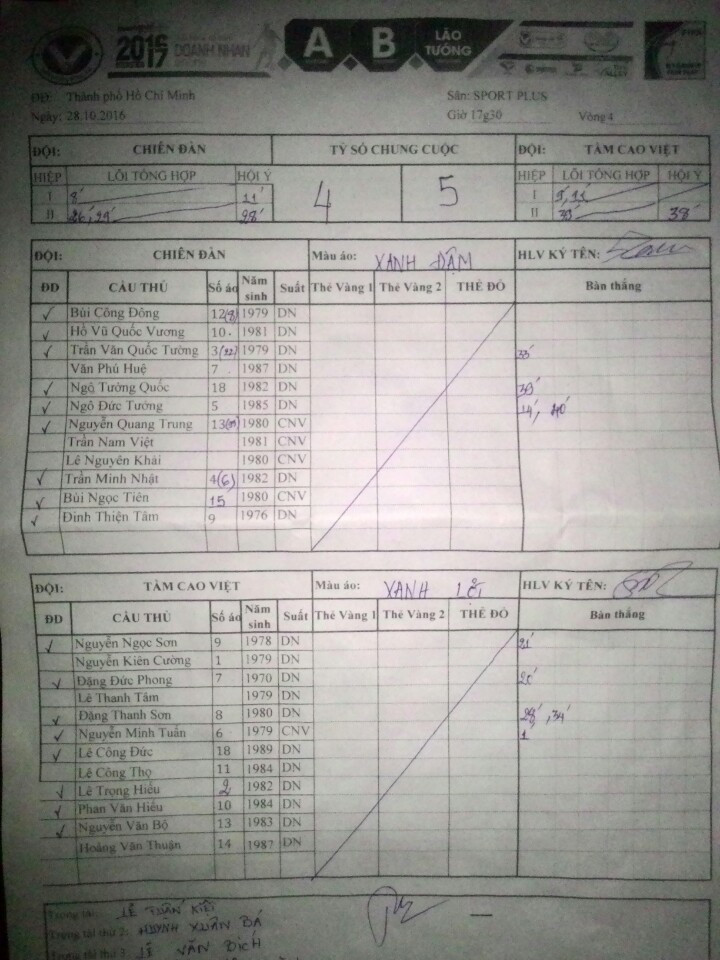 2016
2017
DOANH NHÂN
A B LÃO TƯỚNG
Thành phố Hồ Chí Minh
Sân: SPORT PLUS
Ngày: 28.10.2016
Giờ 17g30
Vòng 4
ĐỘI: CHIẾN ĐÀN TỶ SỐ CHUNG CUỘC ĐỘI: TẦM CAO VIỆT
HIỆP LỖI TỔNG HỢP HỘI Ý 4 5 HIỆP LỖI TỔNG HỢP HỘI Ý
I 8' 11' I
II 28' II 38'
ĐỘI: CHIẾN ĐÀN Màu áo: XANH ĐẬM HLV KÝ TÊN:
ĐD CẦU THỦ Số áo Năm sinh Suất Thẻ Vàng 1 Thẻ Vàng 2 THẺ ĐỎ Bàn thắng
Bùi Công Đông 12(8) 1979 DN
Hồ Vũ Quốc Vương 10 1981 DN
Trần Văn Quốc Tường 3(22) 1979 DN 33'
Văn Phú Huệ 7 1987 DN
Ngô Tưởng Quốc 18 1982 DN
Ngô Đức Tưởng 5 1985 DN 14',
Nguyễn Quang Trung 1980 CNV
Trần Nam Việt 1981 CNV
Lê Nguyên Khải 1980 CNV
Trần Minh Nhật 4(6) 1982 DN
Bùi Ngọc Tiên 15 1980 CNV
Đinh Thiện Tâm 9 1976 DN
ĐỘI: TẦM CAO VIỆT Màu áo: XANH HLV KÝ TÊN:
ĐD CẦU THỦ Số áo Năm sinh Suất Thẻ Vàng 1 Thẻ Vàng 2 THẺ ĐỎ Bàn thắng
Nguyễn Ngọc Sơn 9 1978 DN 21'
Nguyễn Kiên Cường 1 1979 DN
Đặng Đức Phong 7 1970 DN 20'
Lê Thanh Tâm 1979 DN
Đặng Thanh Sơn 8 1980 DN 28', 34'
Nguyễn Minh Tuấn 6 1979 CNV 1'
Lê Công Đức 18 1989 DN
Lê Công Thọ 11 1984 DN
Lê Trọng Hiếu 2 1982 DN
Phan Văn Hiếu 10 1984 DN
Nguyễn Văn Bộ 13 1983 DN
Hoàng Văn Thuận 14 1987 DN
Trọng tài: LÊ TUẤN KIỆT
Trọng tài thứ 2: HUỲNH XUÂN BÁ
Trọng tài thứ 3: LÊ VĂN ĐÍCH